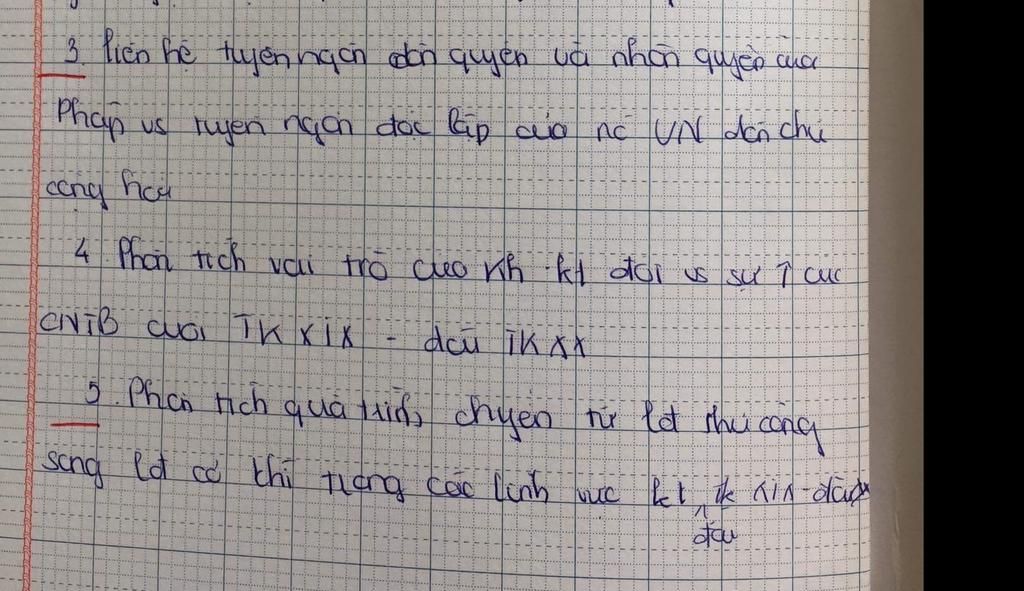 3. liên hệ tuyên ngôn dân quyền và nhân quyền của
Pháp vs tuyên ngôn độc lập của nc VN dân chủ
cộng hoà
4 Phân tích vai trò của kh - kt đối vs sự ↑ của
CNTB cuối TK XIX - đầu TK XX
5. Phân tích quá trình chuyển từ lđ thủ công
sang lđ cơ khí trong các lĩnh vực kt đầu tk XIX - đầu